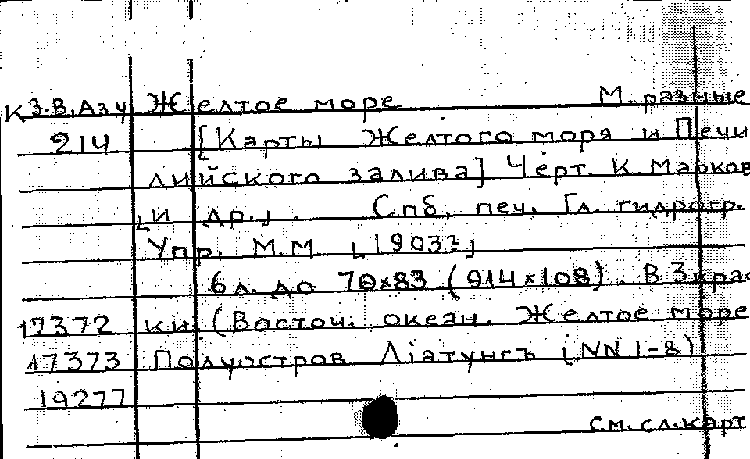 К З.В.Азч Желтое море М. разные
214 [Карты Желтого моря и Печи
лийского залива] Черт. К. Марков
[и др.]. Спб, печ. Гл. гидрогр.
Упр. М.М [1903?]
6 л. до 70х83 (914х108). В 3 крас
17372 ки (Восточ. океан. Желтое море
17373 Полуостров Лiатунгъ (NN 1-8)
19277
см. сл. карт